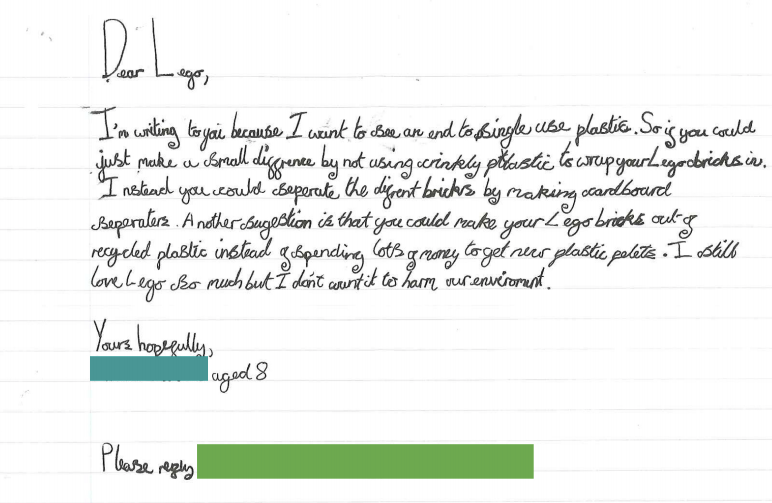 Dear Lego,
I'm writing to you because I want to see an end to single use plastic. So if you could
just make a small diffrence by not using crinkly plastic to wrap your Lego bricks in.
Instead you could seperate the difrent bricks by making cardboard
seperaters. Another sugestion is that you could make your Lego bricks out of
recycled plastic instead of spending lots of money to get new plastic pelets. I still
love Lego so much but I don't want it to harm our enviroment.
Yours hopefully,
aged 8
Please reply